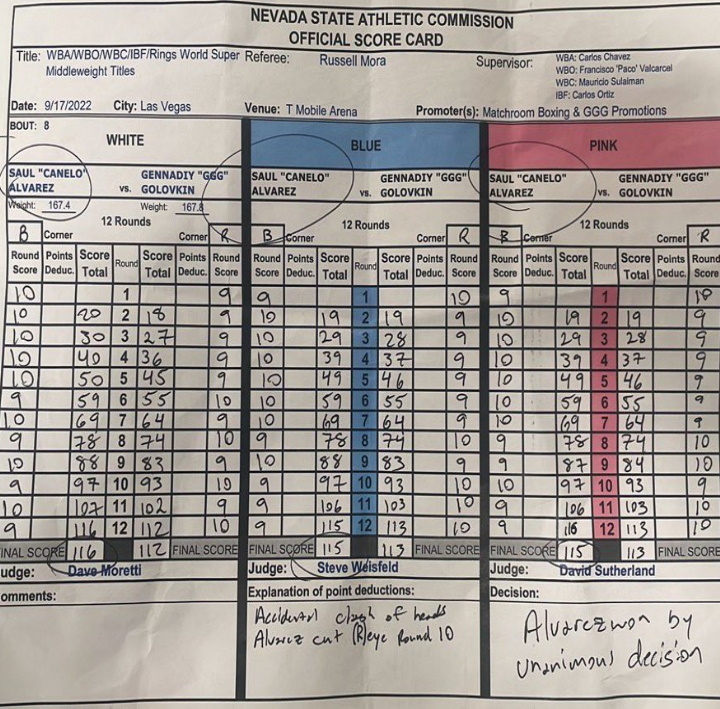 NEVADA STATE ATHLETIC COMMISSION
OFFICIAL SCORE CARD
Title: WBA/WBO/WBC/IBF/Rings World Super Middleweight Titles
Referee: Russell Mora
Supervisor: WBA: Carlos Chavez
WBO: Francisco 'Paco' Valcarcel
WBC: Mauricio Sulaiman
IBF: Carlos Ortiz
Date: 9/17/2022 City: Las Vegas Venue: T Mobile Arena Promoter(s): Matchroom Boxing & GGG Promotions
BOUT: 8
WHITE
SAUL "CANELO" ALVAREZ vs. GENNADIY "GGG" GOLOVKIN
Weight: 167.4 Weight: 167.8
12 Rounds
B Corner Corner R
Round Score Points Deduc. Score Total Round Score Total Points Deduc. Round Score
10 1 9
10 20 2 18 9
10 30 3 27 9
10 40 4 36 9
10 50 5 45 9
9 59 6 55 10
10 69 7 64 9
9 78 8 74 10
10 88 9 83 9
9 97 10 93 10
10 107 11 102 9
9 116 12 112 10
INAL SCORE 116 112 FINAL SCORE
udge: Dave Moretti
omments:
BLUE
SAUL "CANELO" ALVAREZ vs. GENNADIY "GGG" GOLOVKIN
12 Rounds
B Corner Corner R
Round Score Points Deduc. Score Total Round Score Total Points Deduc. Round Score
9 1 10
10 19 2 19 9
10 29 3 28 9
10 39 4 37 9
10 49 5 46 9
10 59 6 55 9
10 69 7 64 9
9 78 8 74 10
10 88 9 83 9
9 97 10 93 10
9 106 11 103 10
9 115 12 113 10
FINAL SCORE 115 113 FINAL SCORE
Judge: Steve Weisfeld
Explanation of point deductions:
Accidental clash of heads
Alvarez cut (R) eye Round 10
PINK
SAUL "CANELO" ALVAREZ vs. GENNADIY "GGG" GOLOVKIN
12 Rounds
B Corner Corner R
Round Score Points Deduc. Score Total Round Score Total Points Deduc. Round Score
9 1 10
10 19 2 19 9
10 29 3 28 9
10 39 4 37 9
10 49 5 46 9
10 59 6 55 9
10 69 7 64 9
9 78 8 74 10
9 87 9 84 10
10 97 10 93 9
9 106 11 103 10
9 116 12 113 10
FINAL SCORE 115 113 FINAL SCORE
Judge: David Sutherland
Decision:
Alvarez won by
unanimous decision